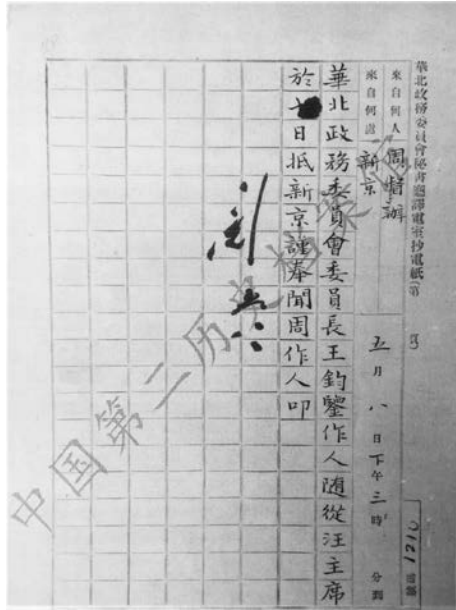 華北政務委員會秘書廳譯電室抄電紙(第
來自何人 周督辦
來自何處 新京
五月八日下午三時 分到
號碼 1210
華北政務委員會委員長王鈞鑒作人隨從汪主席
於 日抵新京謹奉聞周作人叩
中国第二历史档案馆